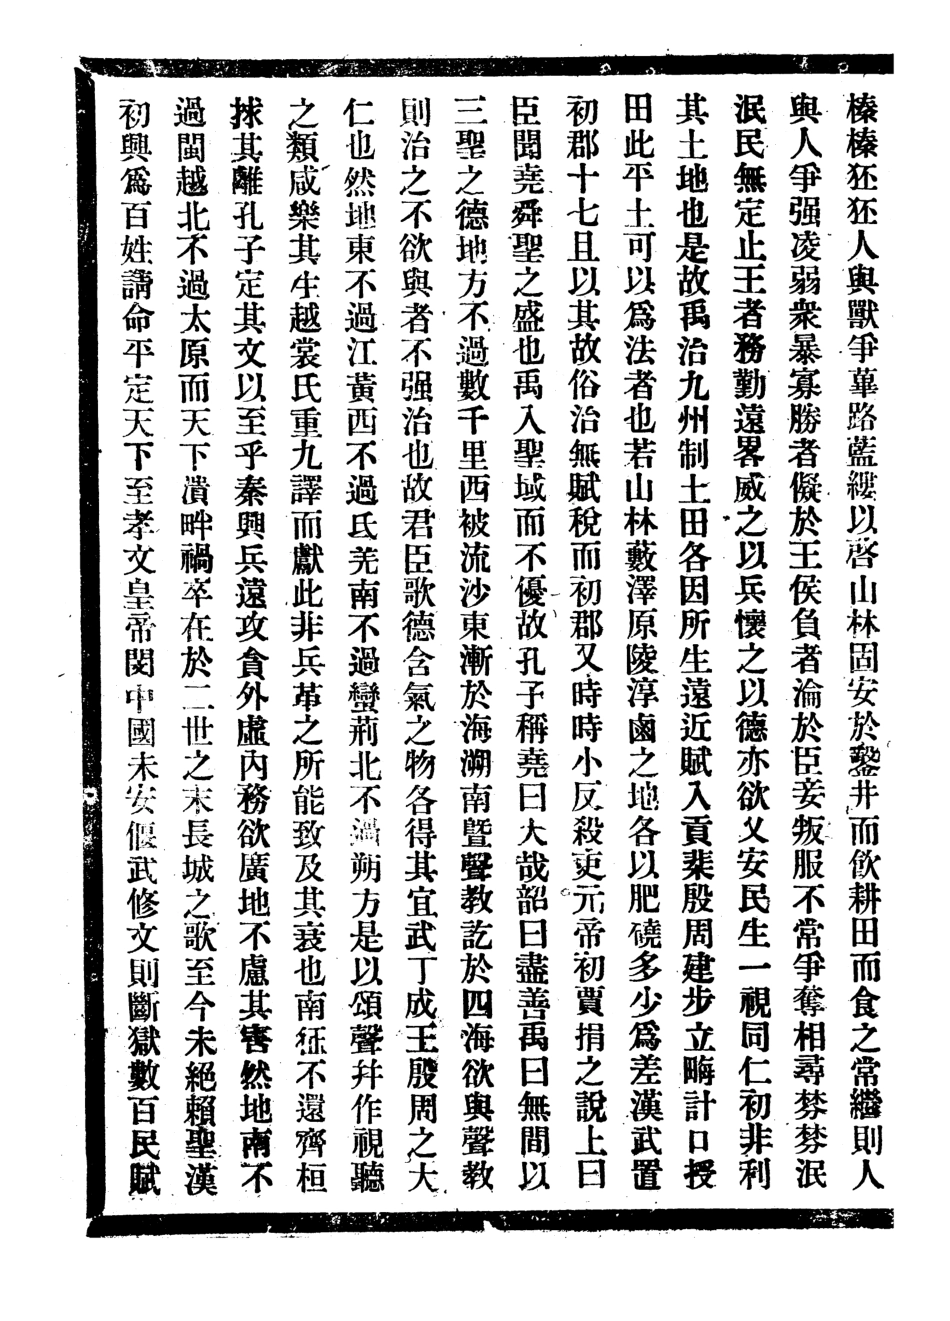 榛榛狉狉人與獸爭蓽路藍縷以啓山林固安於鑿井而飲耕田而食之常繼則人
與人爭强凌弱衆暴寡勝者儗於王侯負者淪於臣妾叛服不常爭奪相尋棼棼泯
泯民無定止王者務勤遠畧威之以兵懷之以德亦欲乂安民生一視同仁初非利
其土地也是故禹治九州制土田各因所生遠近賦入貢棐殷周建步立畮計口授
田此平土可以爲法者也若山林藪澤原陵淳鹵之地各以肥磽多少爲差漢武置
初郡十七且以其故俗治無賦稅而初郡又時時小反殺吏元帝初賈捐之說上曰
臣聞堯舜聖之盛也禹入聖域而不優故孔子稱堯曰大哉韶曰盡善禹曰無間以
三聖之德地方不過數千里西被流沙東漸於海溯南曁聲教訖於四海欲與聲教
則治之不欲與者不强治也故君臣歌德含氣之物各得其宜武丁成王殷周之大
仁也然地東不過江黃西不過氐羌南不過蠻荊北不過朔方是以頌聲幷作視聽
之類咸樂其生越裳氏重九譯而獻此非兵革之所能致及其衰也南征不還齊桓
捄其離孔子定其文以至乎秦興兵遠攻貪外虛內務欲廣地不慮其害然地南不
過閩越北不過太原而天下潰畔禍卒在於二世之末長城之歌至今未絕賴聖漢
初興爲百姓請命平定天下至孝文皇帝閔中國未安偃武修文則斷獄數百民賦